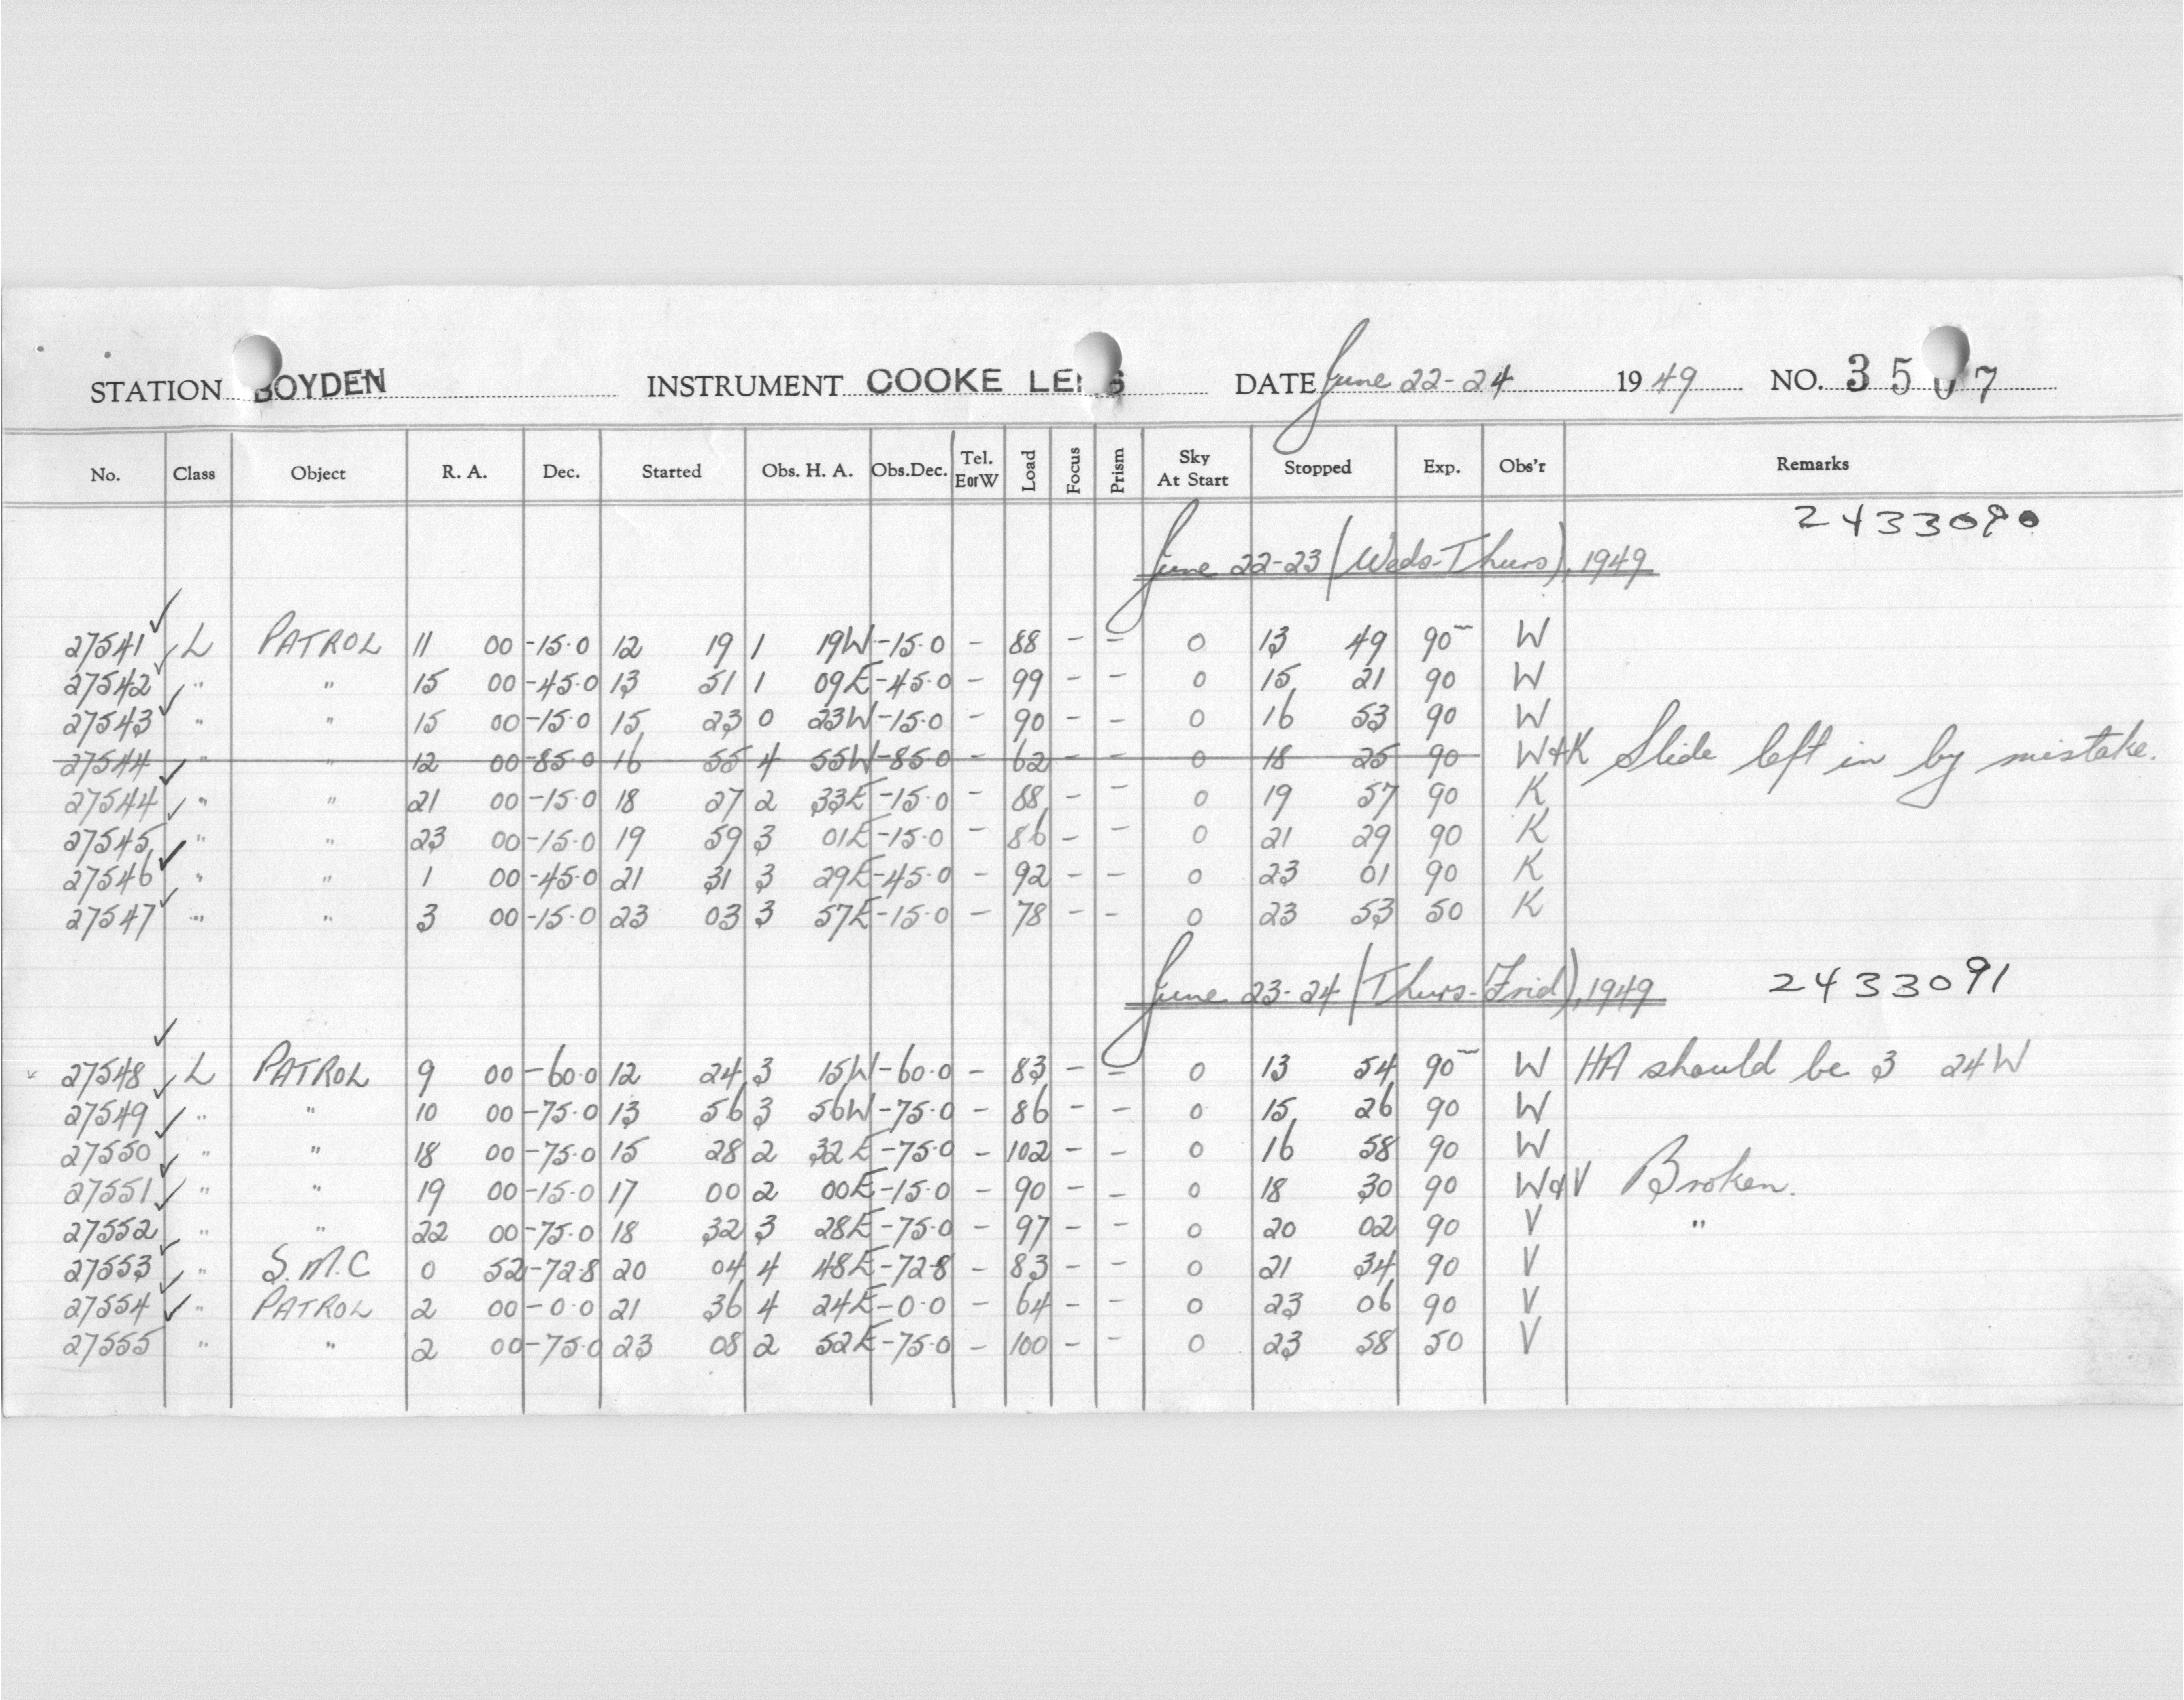 STATION BOYDEN INSTRUMENT COOKE LENS DATE June 22-24 1949 NO. 3507
No. Class Object R. A. Dec. Started Obs. H. A. Obs.Dec. Tel. EorW Load Focus Prism Sky At Start Stopped Exp. Obs'r Remarks
2433090
June 22-23 (Weds-Thurs), 1949
27541 L PATROL 11 00 -15.0 12 19 1 19W -15.0 - 88 - - 0 13 49 90m W
27542 " " 15 00 -45.0 13 51 1 09E -45.0 - 99 - - 0 15 21 90 W
27543 " " 15 00 -15.0 15 23 0 23W -15.0 - 90 - - 0 16 53 90 W
27544 " " 12 00 -85.0 16 55 4 55W -85.0 - 62 - - 0 18 25 90 W+K Slide left in by mistake.
27544 " " 21 00 -15.0 18 27 2 33E -15.0 - 88 - - 0 19 57 90 K
27545 " " 23 00 -15.0 19 59 3 01E -15.0 - 86 - - 0 21 29 90 K
27546 " " 1 00 -45.0 21 31 3 29E -45.0 - 92 - - 0 23 01 90 K
27547 " " 3 00 -15.0 23 03 3 57E -15.0 - 78 - - 0 23 53 50 K
June 23-24 (Thurs-Frid), 1949 2433091
27548 L PATROL 9 00 -60.0 12 24 3 15W -60.0 - 83 - - 0 13 54 90m W HA should be 3 24W
27549 " " 10 00 -75.0 13 56 3 56W -75.0 - 86 - - 0 15 26 90 W
27550 " " 18 00 -75.0 15 28 2 32E -75.0 - 102 - - 0 16 58 90 W
27551 " " 19 00 -15.0 17 00 2 00E -15.0 - 90 - - 0 18 30 90 W&V Broken.
27552 " " 22 00 -75.0 18 32 3 28E -75.0 - 97 - - 0 20 02 90 V "
27553 " S.M.C 0 52 -72.8 20 04 4 48E -72.8 - 83 - - 0 21 34 90 V
27554 " PATROL 2 00 -0.0 21 36 4 24E -0.0 - 64 - - 0 23 06 90 V
27555 " " 2 00 -75.0 23 08 2 52E -75.0 - 100 - - 0 23 58 50 V